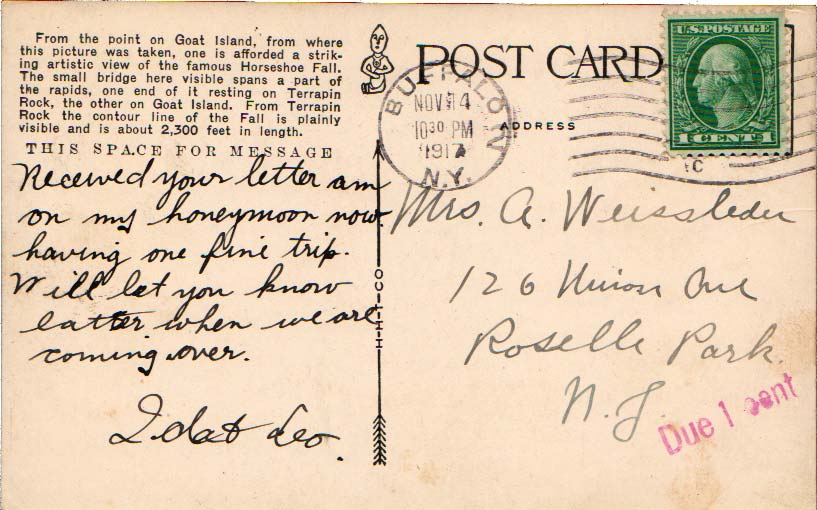 From the point on Goat Island, from where
this picture was taken, one is afforded a strik-
ing artistic view of the famous Horseshoe Fall.
The small bridge here visible spans a part of
the rapids, one end of it resting on Terrapin
Rock, the other on Goat Island. From Terrapin
Rock the contour line of the Fall is plainly
visible and is about 2,300 feet in length.
THIS SPACE FOR MESSAGE
Received your letter am
on my honeymoon now.
having one fine trip.
Will let you know
latter when we are
coming over.
Leo.
H-H-T-CO
POST CARD
ADDRESS
BUFFALO
NOV 14
10 30 PM
1917
N.Y.
U.S. POSTAGE
1 CENT 1
Mrs. A. Weissleder
126 Union Ave
Roselle Park.
N.J.
Due 1 cent